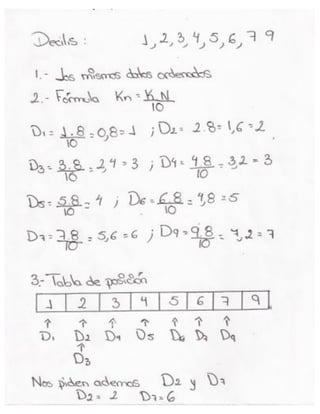 Decilis: 1, 2, 3, 4, 5, 6, 7 9
1.- Los mismos datos ordenados
2.- Fórmula Kn = K.N/10
D1 = 1.8/10 = 0,8 = 1 ; D2 = 2.8 = 1,6 = 2
D3 = 3.8/10 = 2,4 = 3 ; D4 = 4.8/10 = 3,2 = 3
D5 = 5.8/10 = 4 ; D6 = 6.8/10 = 4,8 = 5
D7 = 7.8/10 = 5,6 = 6 ; D9 = 9.8/10 = 7,2 = 7
3.- Tabla de posición
1 2 3 4 5 6 7 9
↑ ↑ ↑ ↑ ↑ ↑ ↑
D1 D2 D4 D5 D6 D7 D9
↑
D3
Nos piden ademas D2 y D7
D2 = 2 D7 = 6